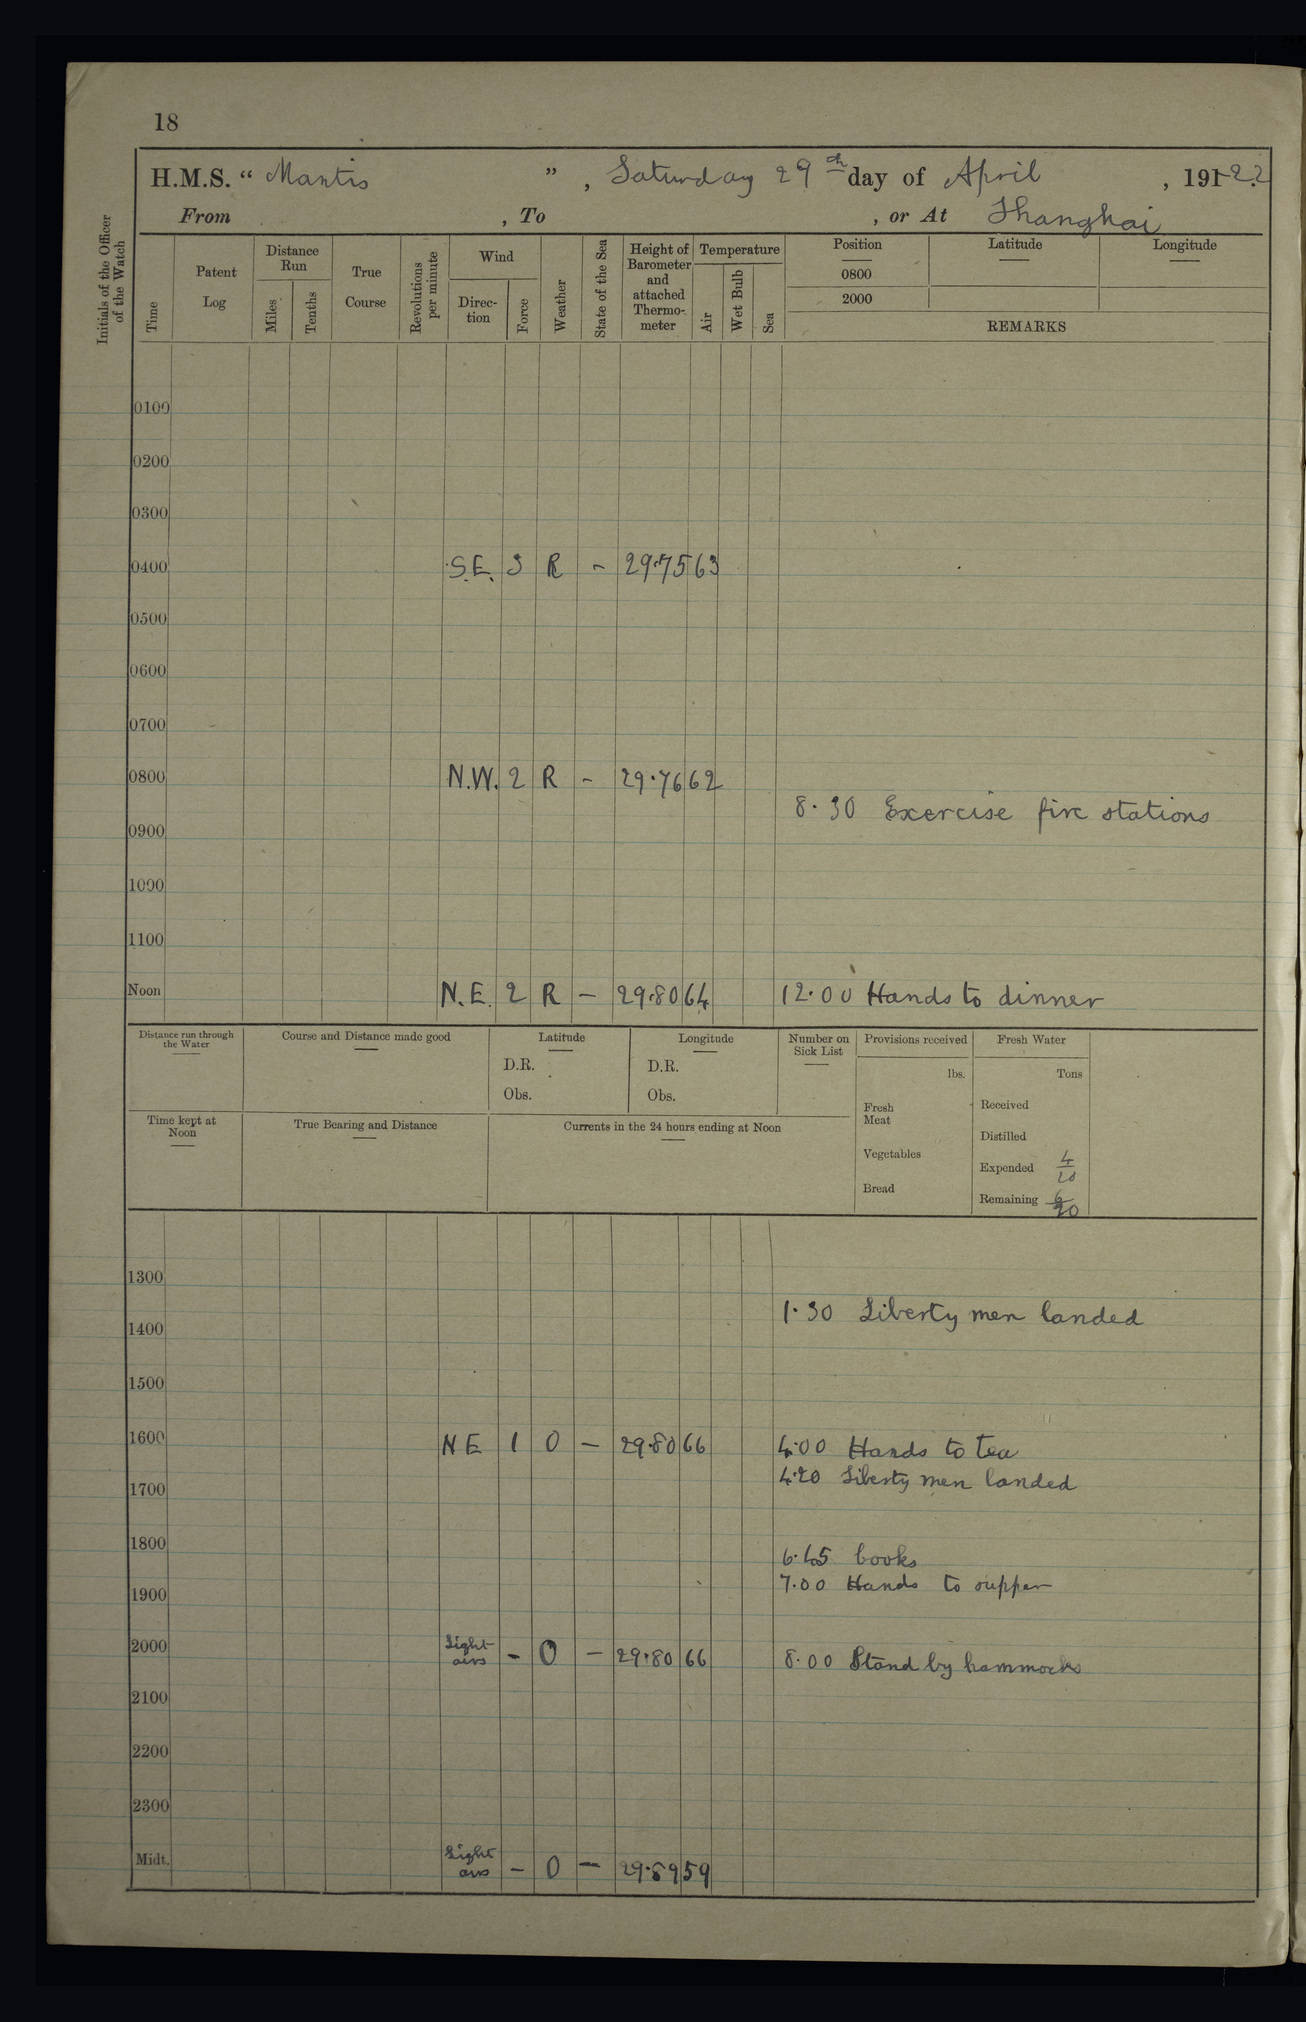 18
H.M.S. “ Mantis ” , Saturday 29th day of April , 191-22
From , To , or At Shanghai
Initials of the Officer of the Watch
Time
Patent Log
Distance Run
Miles
Tenths
True Course
Revolutions per minute
Wind
Direc-tion
Force
Weather
State of the Sea
Height of Barometer and attached Thermo-meter
Temperature
Air
Wet Bulb
Sea
Position Latitude Longitude
0800
2000
REMARKS
0100
0200
0300
0400 S.E. 3 R - 29.75 63
0500
0600
0700
0800 N.W. 2 R - 29.76 62
8.30 Exercise fire stations
0900
1000
1100
Noon N.E. 2 R - 29.80 64 12.00 Hands to dinner
Distance run through the Water
Course and Distance made good
Latitude
D.R.
Obs.
Longitude
D.R.
Obs.
Number on Sick List
Provisions received
lbs.
Fresh Meat
Vegetables
Bread
Fresh Water
Tons
Received
Distilled
Expended 4/20
Remaining 6/20
Time kept at Noon
True Bearing and Distance
Currents in the 24 hours ending at Noon
1300
1.30 Liberty men landed
1400
1500
1600 N E 1 O - 29.80 66 4.00 Hands to tea
4.20 Liberty men landed
1700
1800
6.45 books
7.00 Hands to supper
1900
2000 Light airs - O - 29.80 66 8.00 Stand by hammocks
2100
2200
2300
Midt. Light airs - O - 29.89 59